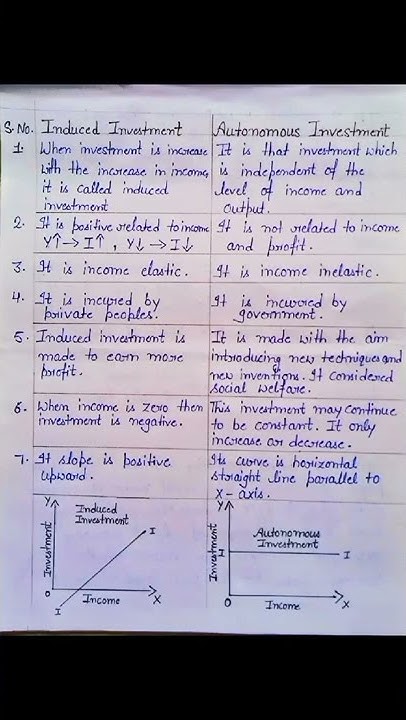 S.No. Induced Investment Autonomous Investment
1. When investment is increase
with the increase in income,
it is called induced
investment
It is that investment which
is independent of the
level of income and
output.
2. It is positive related to income
Y↑→I↑, Y↓→I↓
It is not related to income
and profit.
3. It is income elastic.
It is income inelastic.
4. It is incured by
private peoples.
It is incurred by
government.
5. Induced investment is
made to earn more
profit.
It is made with the aim
introducing new techniques and
new inventions. It considered
social welfare.
6. When income is zero then
investment is negative.
This investment may continue
to be constant. It only
increase or decrease.
7. It slope is positive
upward.
Its curve is horizontal
straight line parallel to
X-axis.
Y
Induced
Investment
I
Investment
O
Income
X
I
Y
Autonomous
Investment
I
I
Investment
O
Income
X